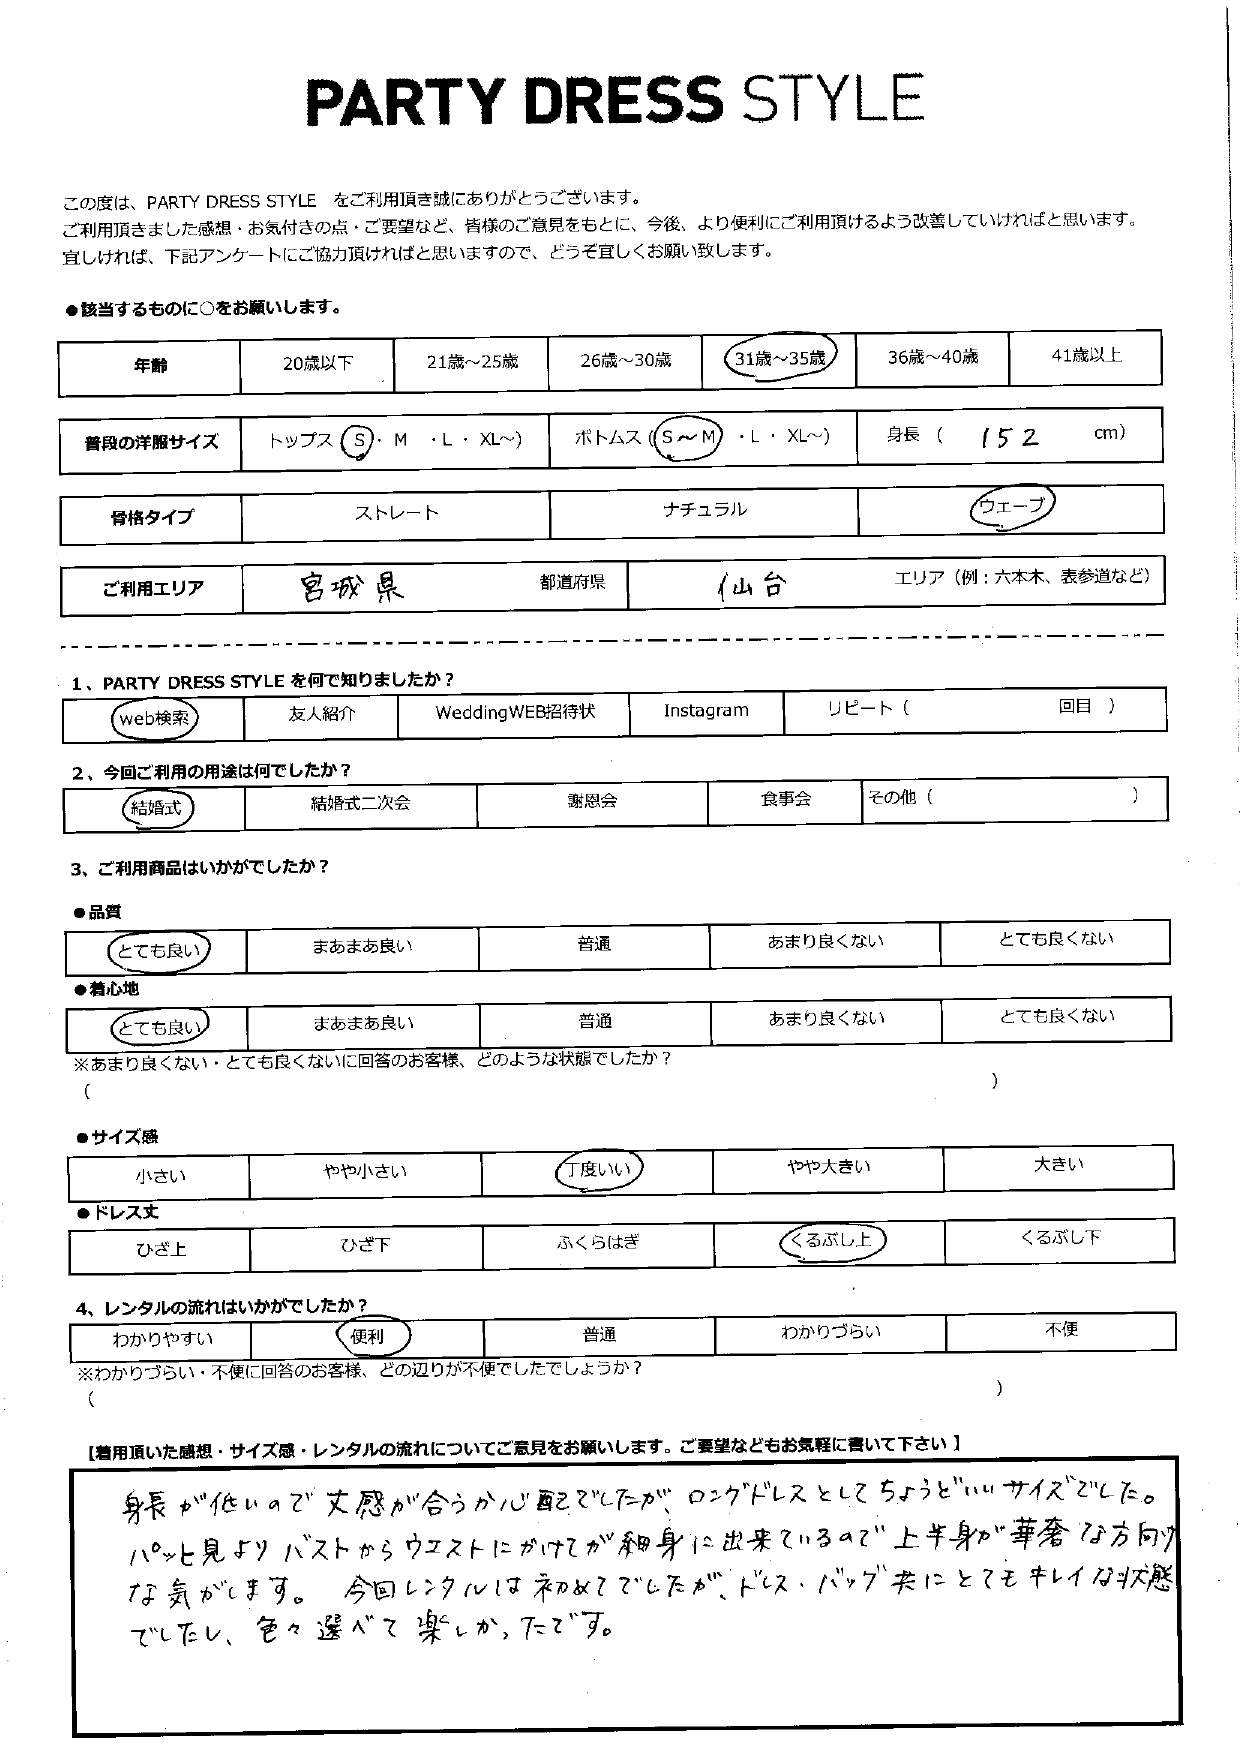 PARTY DRESS STYLE
この度は、PARTY DRESS STYLE をご利用頂き誠にありがとうございます。
ご利用頂きました感想・お気付きの点・ご要望など、皆様のご意見をもとに、今後、より便利にご利用頂けるよう改善していければと思います。
宜しければ、下記アンケートにご協力頂ければと思いますので、どうぞ宜しくお願い致します。
●該当するものに○をお願いします。
年齢 20歳以下 21歳～25歳 26歳～30歳 31歳～35歳 36歳～40歳 41歳以上
普段の洋服サイズ トップス（S・ M ・L ・ XL～） ボトムス（S～M ・L ・ XL～） 身長 （ 152 cm）
骨格タイプ ストレート ナチュラル ウェーブ
ご利用エリア 宮城県 都道府県 仙台 エリア（例：六本木、表参道など）
1、PARTY DRESS STYLE を何で知りましたか？
web検索 友人紹介 WeddingWEB招待状 Instagram リピート（ 回目 ）
2、今回ご利用の用途は何でしたか？
結婚式 結婚式二次会 謝恩会 食事会 その他（ ）
3、ご利用商品はいかがでしたか？
●品質
とても良い まあまあ良い 普通 あまり良くない とても良くない
●着心地
とても良い まあまあ良い 普通 あまり良くない とても良くない
※あまり良くない・とても良くないに回答のお客様、どのような状態でしたか？
（ ）
●サイズ感
小さい やや小さい 丁度いい やや大きい 大きい
●ドレス丈
ひざ上 ひざ下 ふくらはぎ くるぶし上 くるぶし下
4、レンタルの流れはいかがでしたか？
わかりやすい 便利 普通 わかりづらい 不便
※わかりづらい・不便に回答のお客様、どの辺りが不便でしたでしょうか？
（ ）
【着用頂いた感想・サイズ感・レンタルの流れについてご意見をお願いします。ご要望などもお気軽に書いて下さい 】
身長が低いので丈感が合うか心配でしたが、ロングドレスとしてちょうどいいサイズでした。
パッと見よりバストからウエストにかけてが細身に出来ているので上半身が華奢な方向け
な気がします。 今回レンタルは初めてでしたが、ドレス・バッグ共にとてもキレイな状態
でしたし、色々選べて楽しかったです。